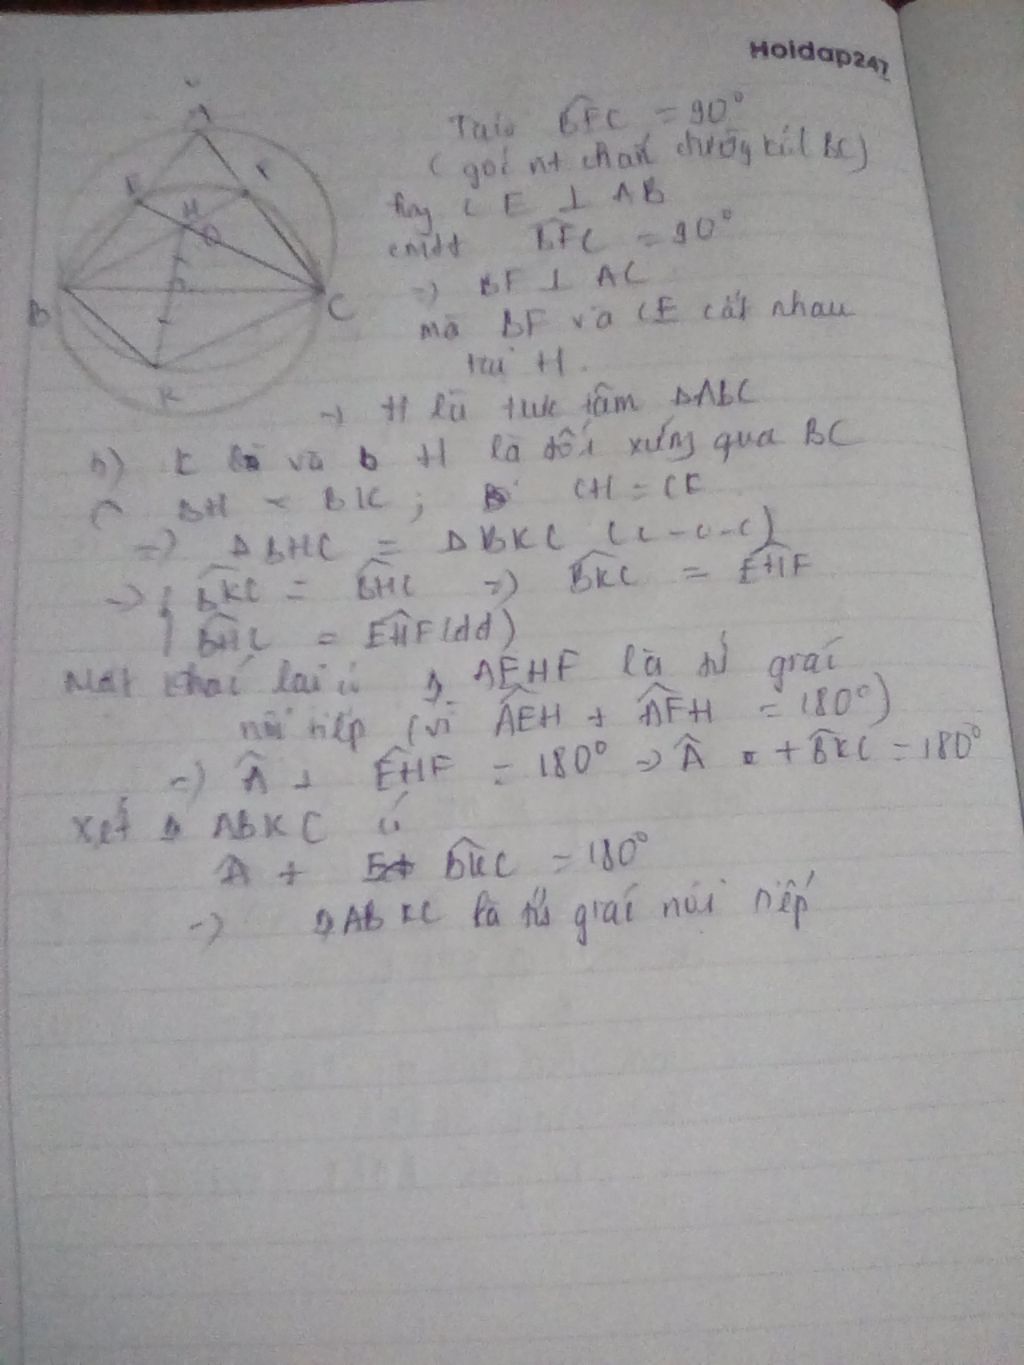 Hoidap247
A
E F
H
O
B C
K
Ta có BFC = 90°
( góc nt chắn đường kính BC)
hay CE ⊥ AB
cmtt BFC = 90°
=> BF ⊥ AC
mà BF và CE cắt nhau
tại H.
-> H là trực tâm ΔABC
b) K và H là đối xứng qua BC
BH = BK ; CH = CK
=> ΔBHC = ΔBKC (c-c-c)
=> { BKC = BHC => BKC = EHF
BHC = EHF (dd)
Mặt khác lại có AEHF là tứ giác
nội tiếp (vì AEH + AFH = 180°)
=> A + EHF = 180° => A + BKC = 180°
Xét ABKC có
A + BKC = 180°
=> ABKC là tứ giác nội tiếp